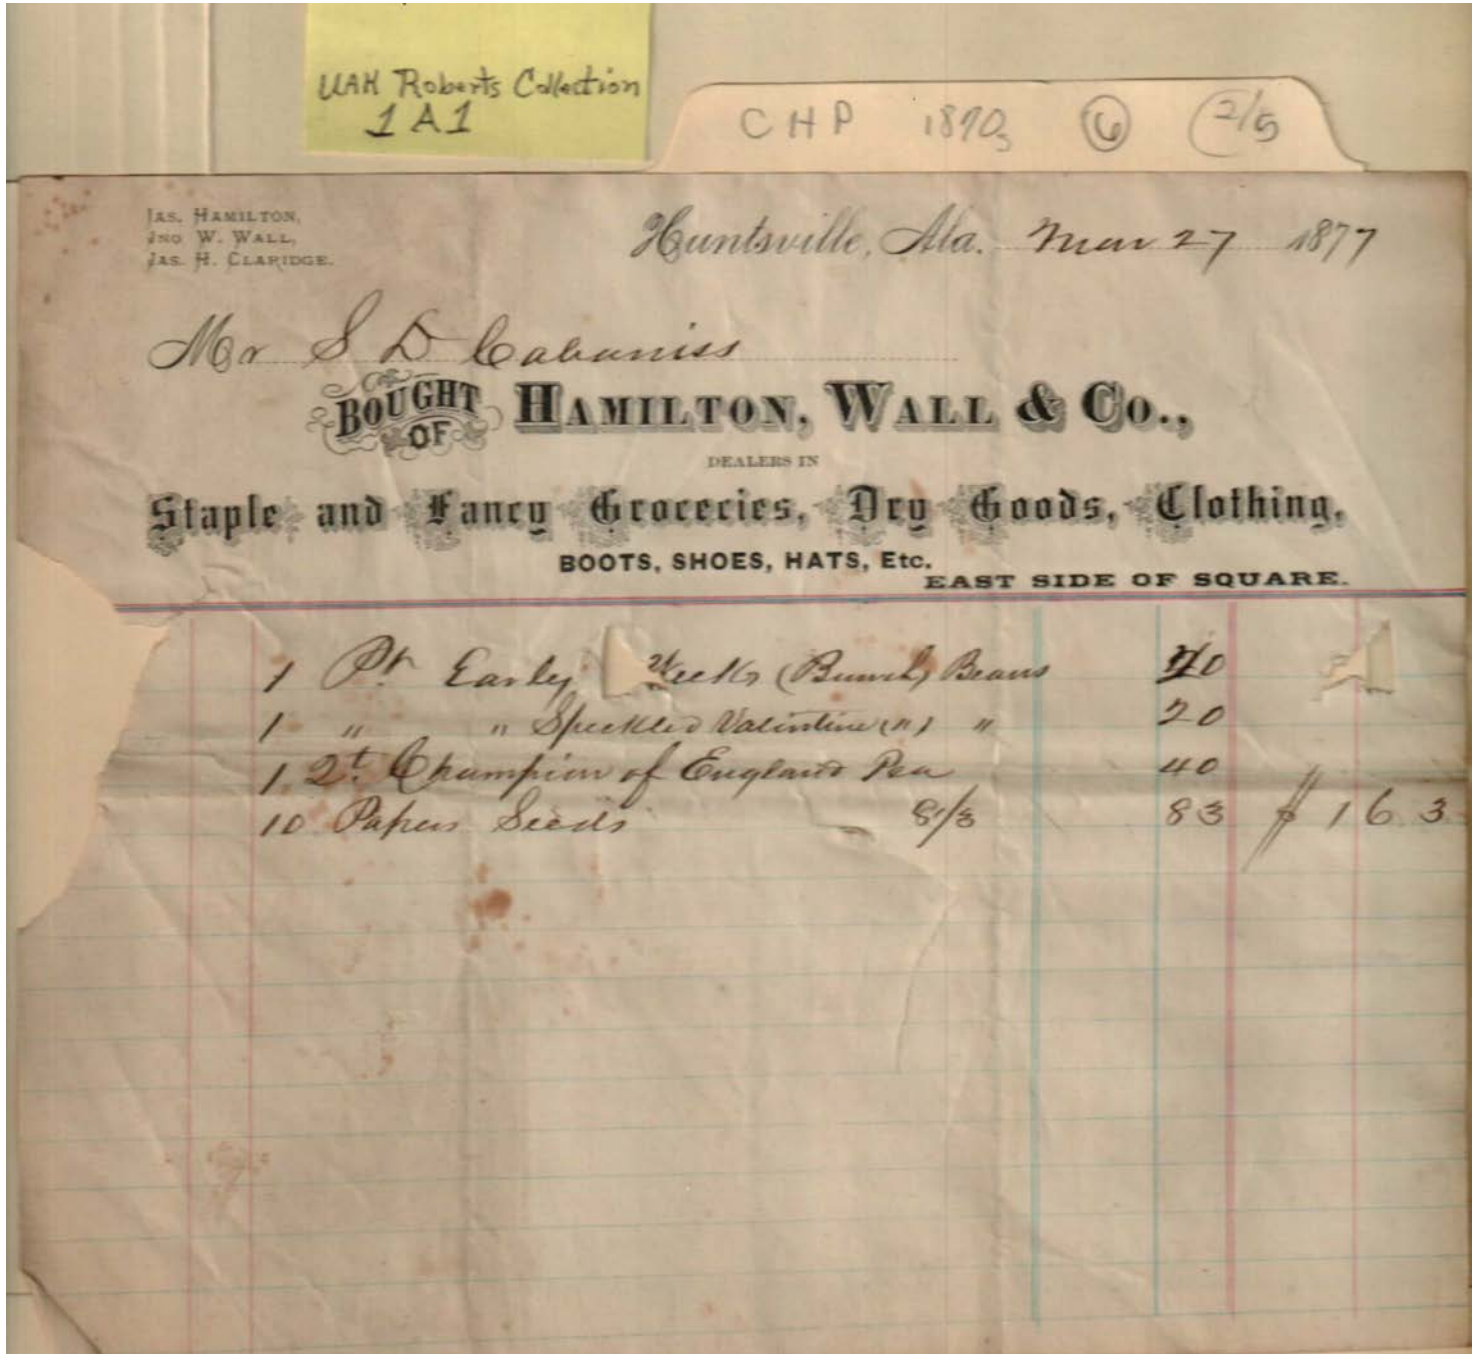 UAH Roberts Collection
1A1
CHP 1870s 6 2/5
JAS. HAMILTON,
JNO W. WALL,
JAS. H. CLARIDGE.
Huntsville, Ala. Mar 27 1877
Mr S D Cabaniss
BOUGHT OF HAMILTON, WALL & CO.,
DEALERS IN
Staple and Fancy Groceries, Dry Goods, Clothing,
BOOTS, SHOES, HATS, Etc.
EAST SIDE OF SQUARE.
1 Pt Early Weeks (Bunch) Beans
1 " " Speckled Valintine (") " 20
1 Qt. Champion of England Pea 40
10 Papers Seeds 8 1/3 83 $ 1 6 3